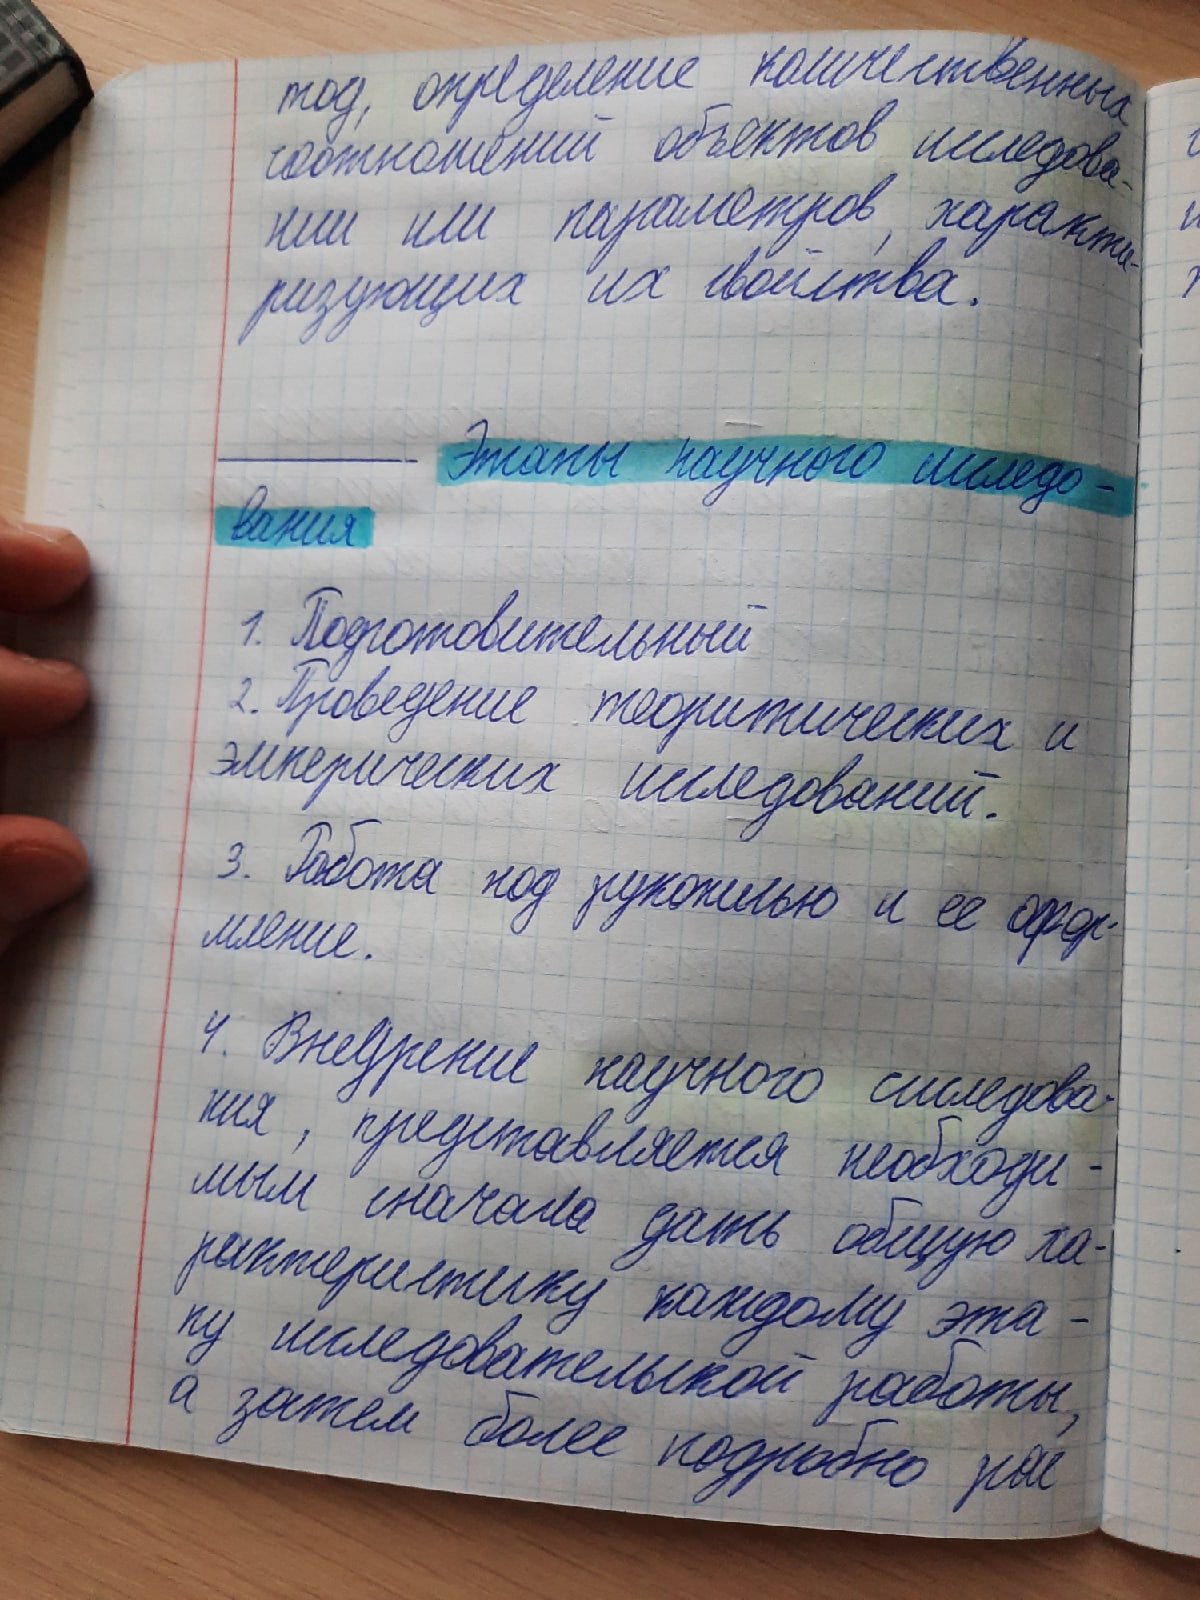 тод, определение количественных
соотношений объектов исследова-
нии или параметров, характи-
ризующих их свойства.
Этапы научного исследо-
вания
1. Подготовительный
2. Проведение теоритических и
эмперических исследований.
3. Работа над рукописью и ее офор-
мление.
4. Внедрение научного исследова-
ния, представляется необходи-
мым сначала дать общую ха-
рактеристику каждому эта-
пу исследовательской работы,
а затем более подробно рас